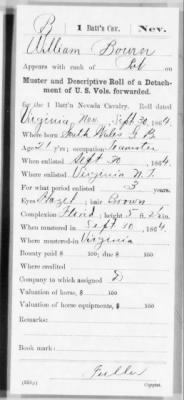 B | 1 Batt'n Cav. | Nev.
William Bourn
Appears with rank of Pvt on
Muster and Descriptive Roll of a Detach-
ment of U. S. Vols. forwarded.
for the 1 Batt'n Nevada Cavalry. Roll dated
Virginia Nev, Sept. 30, 1864.
Where born South Wales G B
Age 21 y'rs; occupation Teamster
When enlisted Sept 30, 1864.
Where enlisted Virginia N. T.
For what period enlisted 3 years.
Eyes Hazel; hair Brown
Complexion Florid; height 5 ft. in.
When mustered in Sept 10, 1864.
Where mustered in Virginia
Bounty paid $ 100; due $ 100
Where credited
Company to which assigned
Valuation of horse, $ 100
Valuation of horse equipments, $ 100
Remarks:
Book mark:
Copyist.